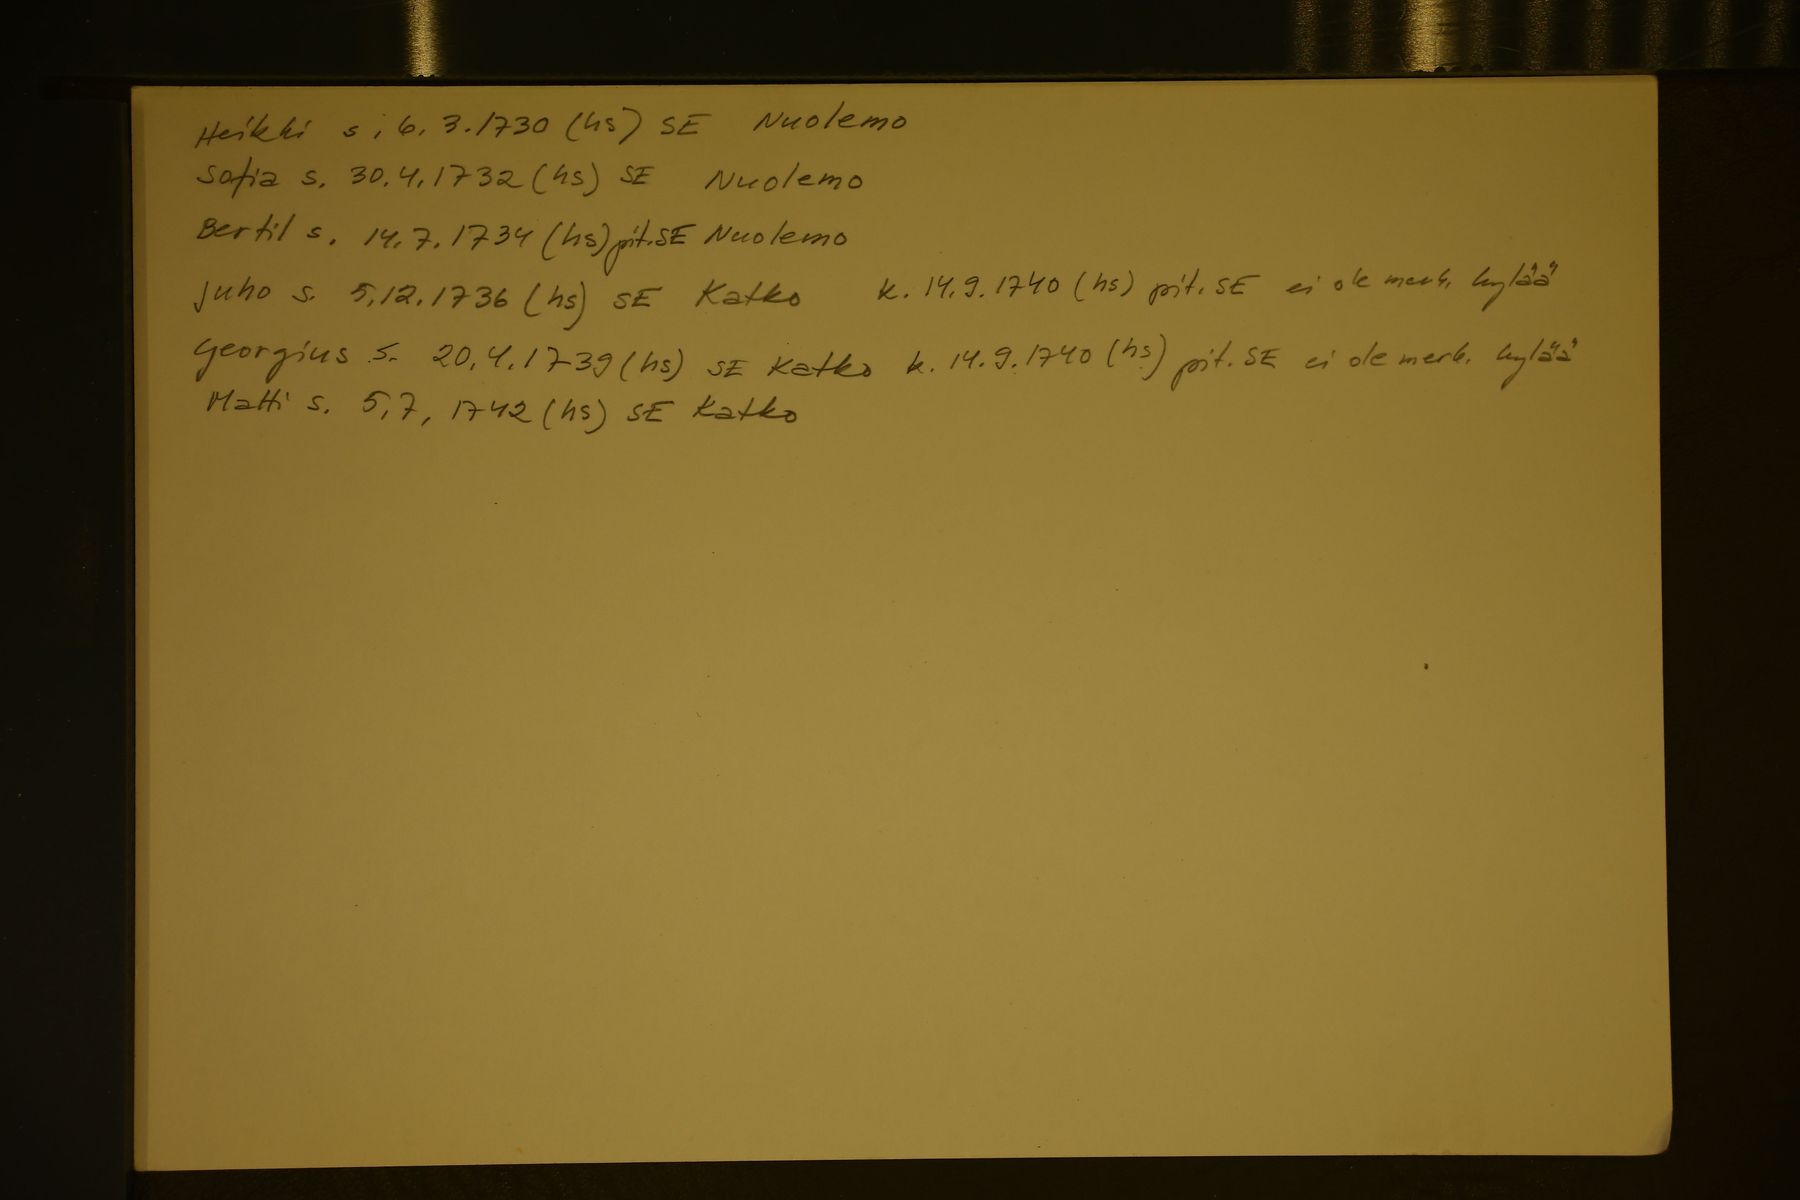 Heikki s. 6.3.1730 (hs) SE Nuolemo
Sofia s. 30.4.1732 (hs) SE Nuolemo
Bertil s. 14.7.1734 (hs) pit. SE Nuolemo
Juho s. 5.12.1736 (hs) SE Katko k. 14.9.1740 (hs) pit. SE ei ole merk. kylää
Georgius s. 20.4.1739 (hs) SE Katko k. 14.9.1740 (hs) pit. SE ei ole merk. kylää
Matti s. 5,7, 1742 (hs) SE Katko